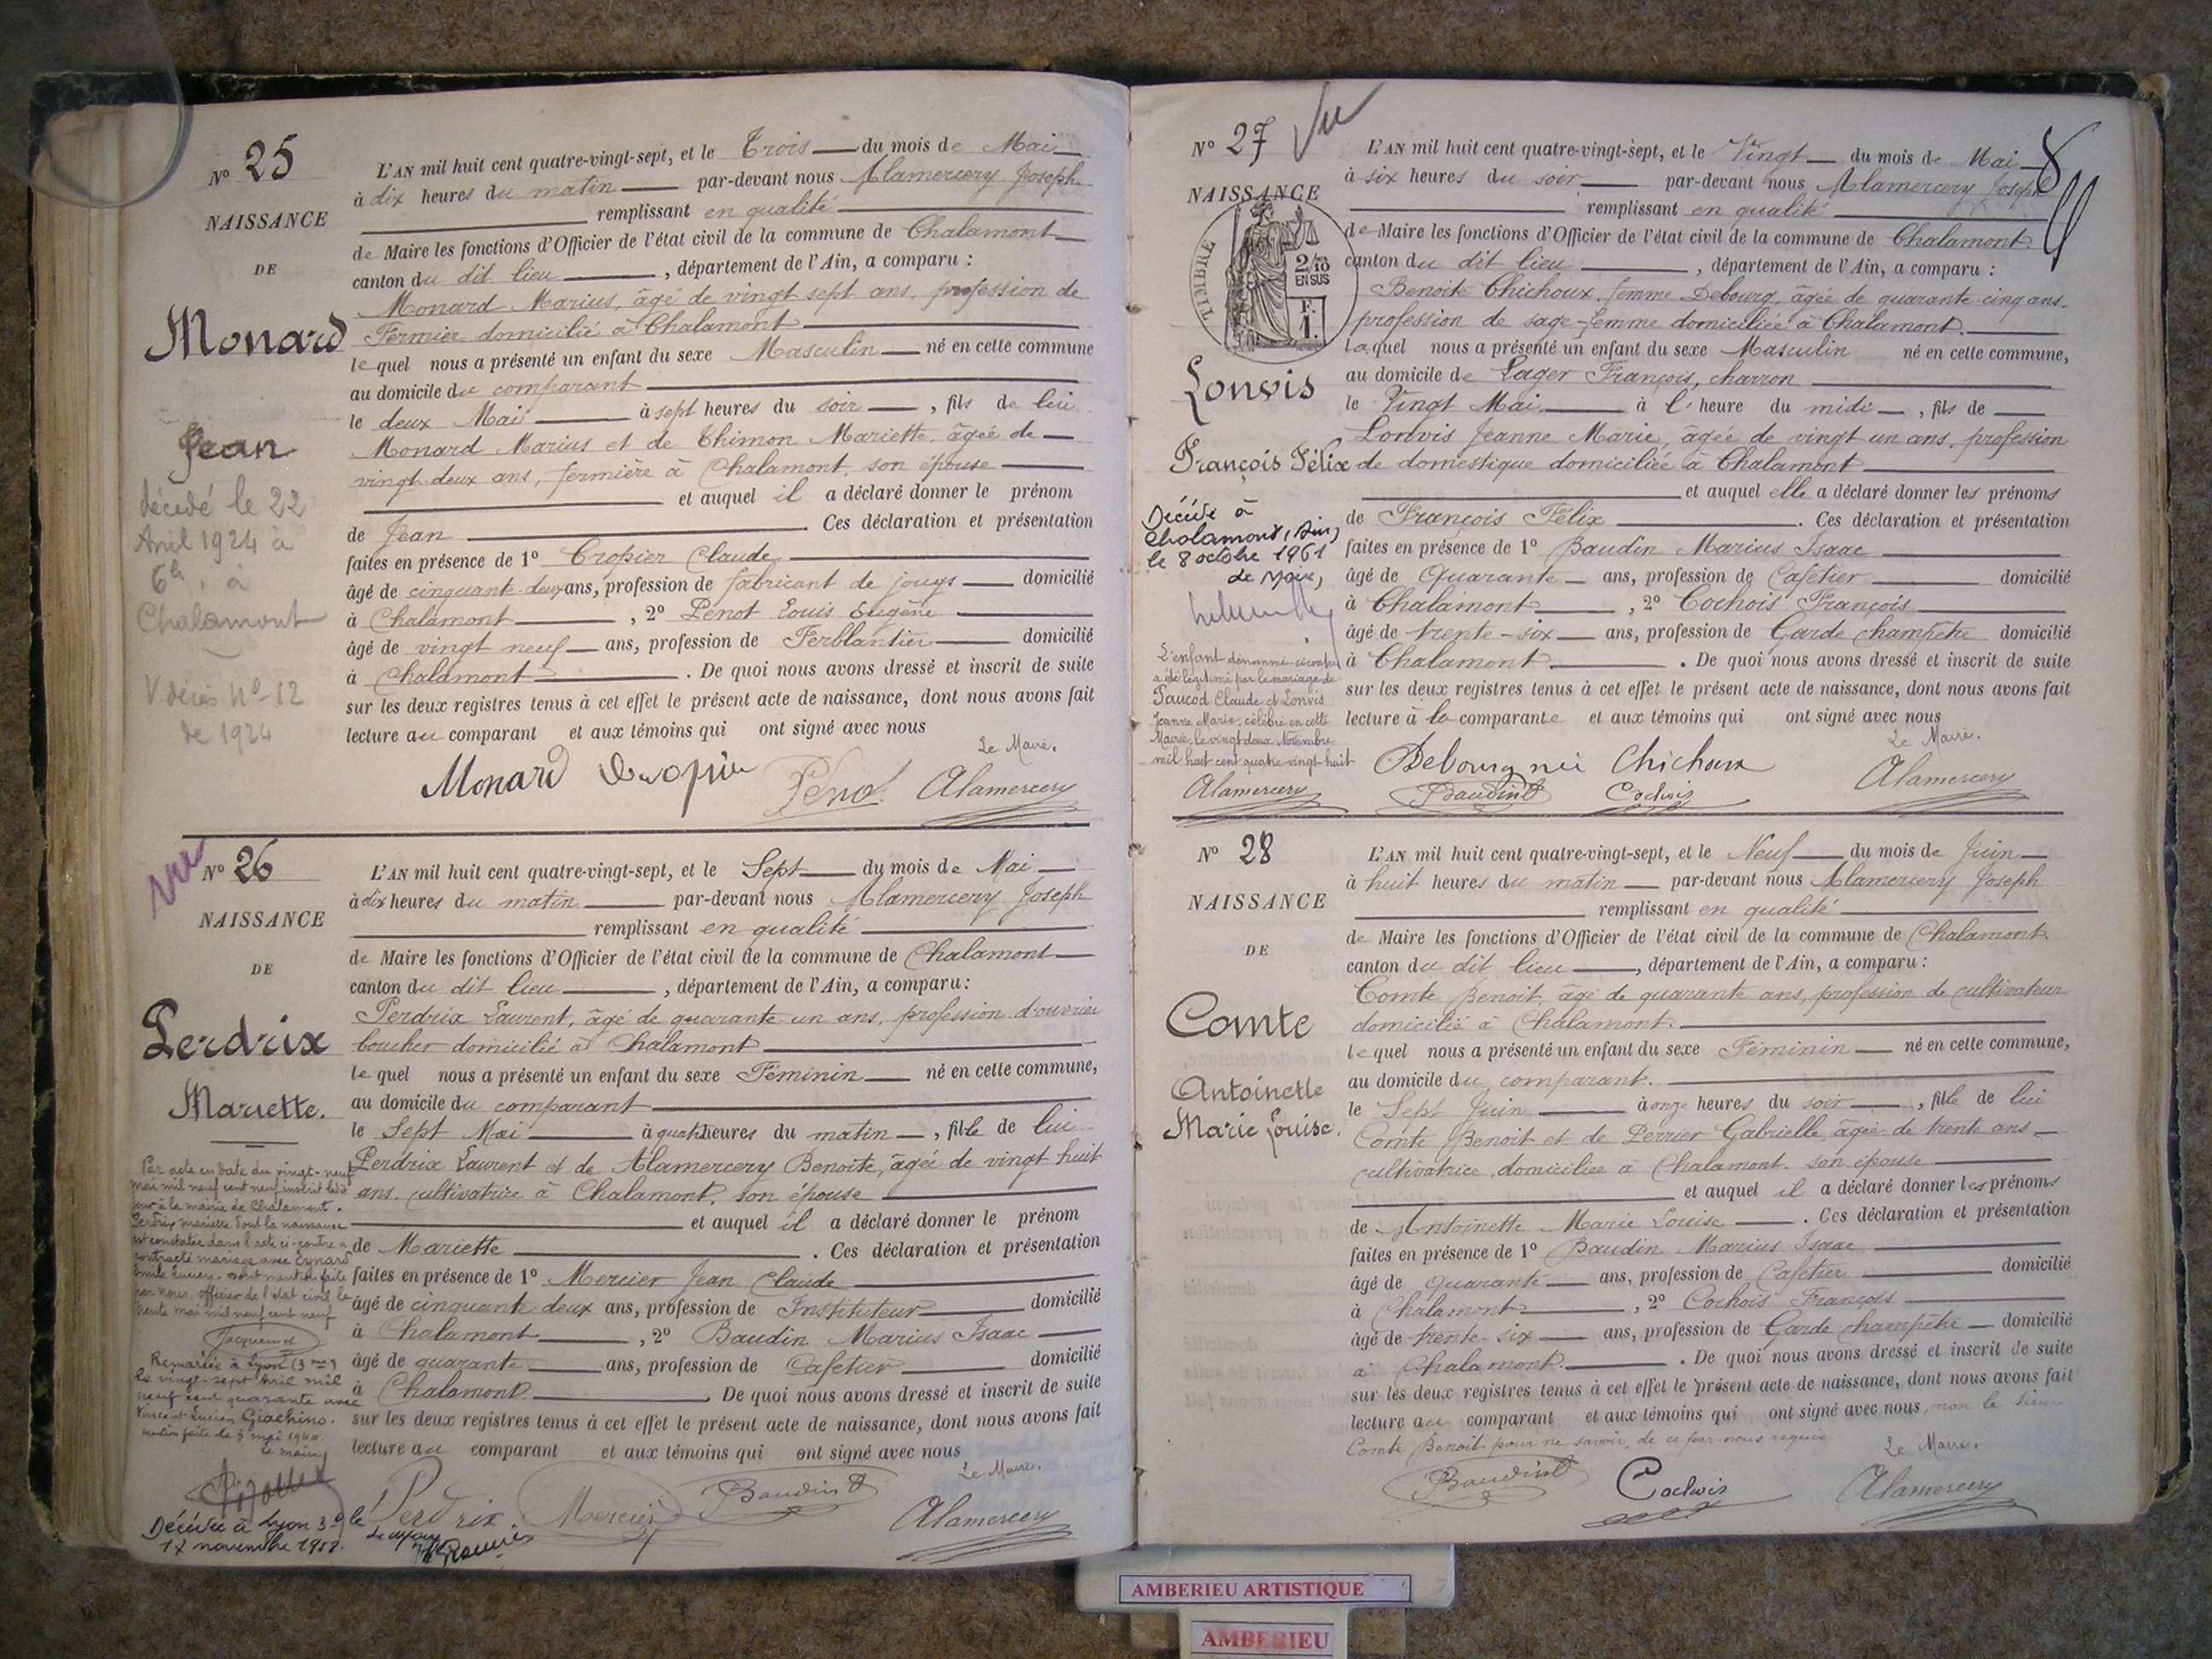 N° 25
NAISSANCE
DE
Monard
Jean
décédé le 22
Avril 1924 à
6h. à
Chalamont
V décès N° 12
de 1924
L'AN mil huit cent quatre-vingt-sept, et le Trois du mois de Mai
à dix heures du matin par-devant nous Alamercery Joseph
remplissant en qualité
de Maire les fonctions d'Officier de l'état civil de la commune de Chalamont
canton du dit lieu , département de l'Ain, a comparu :
Monard Marius, âgé de vingt sept ans, profession de
Fermier domicilié à Chalamont
lequel nous a présenté un enfant du sexe Masculin né en cette commune
au domicile du comparant
le deux Mai à sept heures du soir , fils de lui
Monard Marius et de Thimon Mariette, âgée de
vingt-deux ans, fermière à Chalamont, son épouse
et auquel il a déclaré donner le prénom
de Jean . Ces déclaration et présentation
faites en présence de 1° Cropier Claude
âgé de cinquante-deux ans, profession de fabricant de jougs domicilié
à Chalamont , 2° Penot Louis Eugène
âgé de vingt neuf ans, profession de Ferblantier domicilié
à Chalamont . De quoi nous avons dressé et inscrit de suite
sur les deux registres tenus à cet effet le présent acte de naissance, dont nous avons fait
lecture au comparant et aux témoins qui ont signé avec nous
Le Maire.
Monard Penot Alamercery
vu
N° 26
NAISSANCE
DE
Perdrix
Mariette.
Par acte en date du vingt-neuf
mai mil neuf cent neuf inscrit ledit
jour à la mairie de Chalamont.
Perdrix Mariette dont la naissance
est constatée dans l'acte ci-contre a
contracté mariage avec Eynard
Emile Lucien. dont mention faite
par nous, officier de l'état civil le
trente mai mil neuf cent neuf
Jacquemet
Remariée à Lyon (3me)
le vingt-sept Avril mil
neuf cent quarante avec
Vincent Lucien Giachino.
mention faite le 3 mai 1940.
Le maire,
Décédée à Lyon 3e le
17 novembre
L'AN mil huit cent quatre-vingt-sept, et le Sept du mois de Mai
à dix heures du matin par-devant nous Alamercery Joseph
remplissant en qualité
de Maire les fonctions d'Officier de l'état civil de la commune de Chalamont
canton du dit lieu , département de l'Ain, a comparu :
Perdrix Laurent, âgé de quarante-un ans, profession d'ouvrier
boucher domicilié à Chalamont
lequel nous a présenté un enfant du sexe Féminin né en cette commune,
au domicile du comparant
le Sept Mai à quatre heures du matin , fille de lui
Perdrix Laurent et de Alamercery Benoite, âgée de vingt huit
ans. cultivatrice à Chalamont, son épouse
et auquel il a déclaré donner le prénom
de Mariette . Ces déclaration et présentation
faites en présence de 1° Mercier Jean Claude
âgé de cinquante deux ans, profession de Instituteur domicilié
à Chalamont , 2° Baudin Marius Isaac
âgé de quarante ans, profession de Cafetier domicilié
à Chalamont. De quoi nous avons dressé et inscrit de suite
sur les deux registres tenus à cet effet le présent acte de naissance, dont nous avons fait
lecture au comparant et aux témoins qui ont signé avec nous
Le Maire.
Perdrix Mercier Baudin Alamercery
N° 27 Vu
NAISSANCE
TIMBRE
2/10
EN SUS
F.
1.
Lonvis
François Félix
Décédé à
Chalamont, (Ain)
le 8 octobre 1961
Le Maire,
L'enfant dénommé ci-contre
a été légitimé par le mariage de
Paucod Claude et Lonvis
Jeanne Marie, célébré en cette
Mairie, le vingt deux Novembre
mil huit cent quatre-vingt-huit
Alamercery
L'AN mil huit cent quatre-vingt-sept, et le Vingt du mois de Mai
à six heures du soir par-devant nous Alamercery Joseph
remplissant en qualité
de Maire les fonctions d'Officier de l'état civil de la commune de Chalamont.
canton du dit lieu , département de l'Ain, a comparu :
Benoite Chichoux, femme Debourg, âgée de quarante-cinq ans.
profession de sage-femme domiciliée à Chalamont.
laquel nous a présenté un enfant du sexe Masculin né en cette commune,
au domicile de Lager François, charron
le Vingt Mai à l'heure du midi , fils de
Lonvis Jeanne Marie, âgée de vingt un ans, profession
de domestique domiciliée à Chalamont
et auquel elle a déclaré donner les prénoms
de François Félix . Ces déclaration et présentation
faites en présence de 1° Baudin Marius Isaac
âgé de Quarante ans, profession de Cafetier domicilié
à Chalamont , 2° Cochois François
âgé de trente-six ans, profession de Garde champêtre domicilié
à Chalamont . De quoi nous avons dressé et inscrit de suite
sur les deux registres tenus à cet effet le présent acte de naissance, dont nous avons fait
lecture à la comparante et aux témoins qui ont signé avec nous
Le Maire.
Debourg née Chichoux
Baudin Cochois Alamercery
N° 28
NAISSANCE
DE
Comte
Antoinette
Marie Louise.
L'AN mil huit cent quatre-vingt-sept, et le Neuf du mois de Juin
à huit heures du matin par-devant nous Alamercery Joseph
remplissant en qualité
de Maire les fonctions d'Officier de l'état civil de la commune de Chalamont.
canton du dit lieu , département de l'Ain, a comparu :
Comte Benoit, âgé de quarante ans, profession de cultivateur
domicilié à Chalamont.
lequel nous a présenté un enfant du sexe Féminin né en cette commune,
au domicile du comparant.
le Sept Juin à onze heures du soir , fille de lui
Comte Benoit et de Perrier Gabrielle, âgée de trente ans
cultivatrice domiciliée à Chalamont. son épouse
et auquel il a déclaré donner les prénoms
de Antoinette Marie Louise . Ces déclaration et présentation
faites en présence de 1° Baudin Marius Isaac
âgé de Quarante ans, profession de Cafetier domicilié
à Chalamont , 2° Cochois François
âgé de trente-six ans, profession de Garde champêtre domicilié
à Chalamont. De quoi nous avons dressé et inscrit de suite
sur les deux registres tenus à cet effet le présent acte de naissance, dont nous avons fait
lecture au comparant et aux témoins qui ont signé avec nous, non le Sieur
Comte Benoit pour ne savoir, de ce par nous requis
Le Maire.
Baudin Cochois Alamercery
AMBERIEU ARTISTIQUE
AMBERIEU